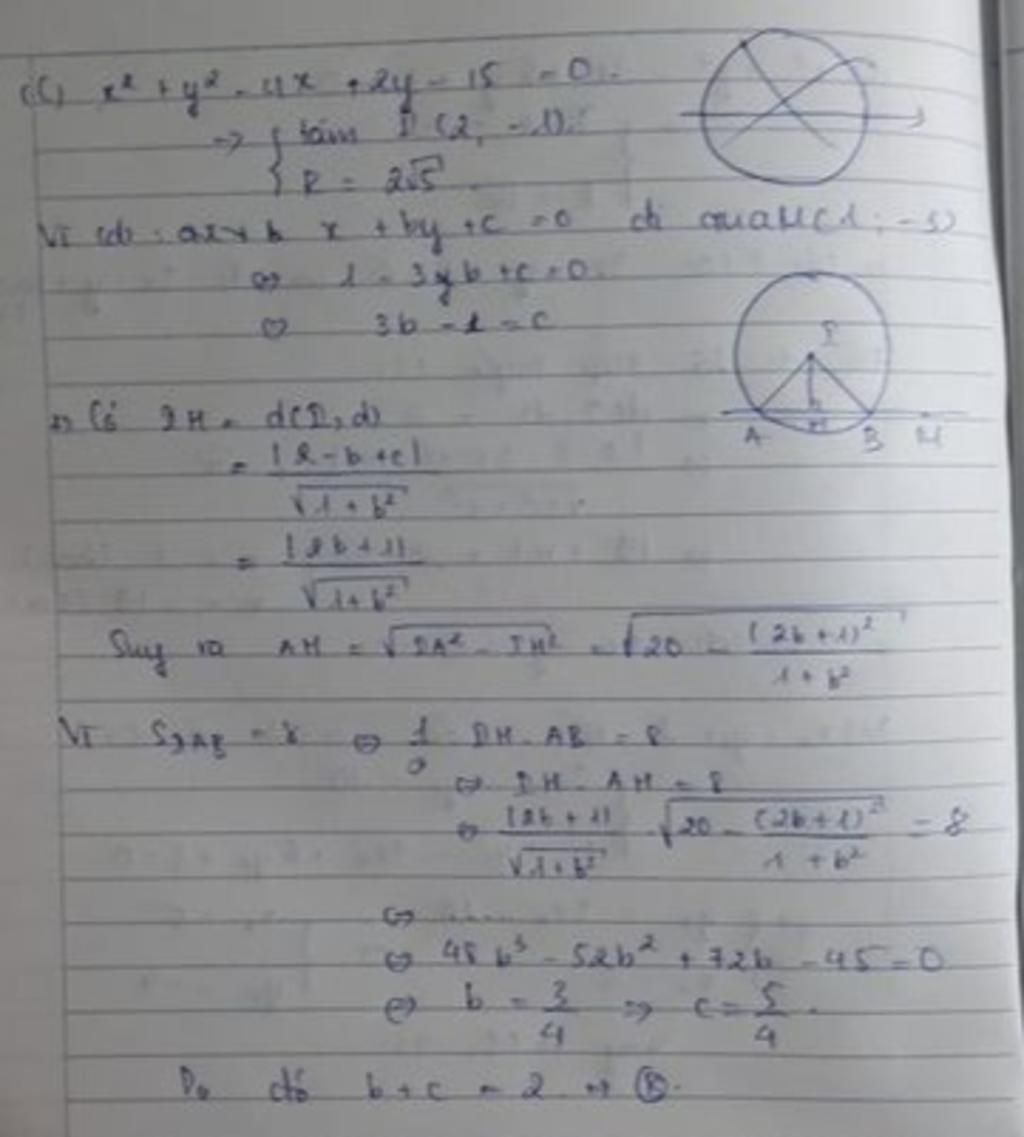 (C) x² + y² - 4x + 2y - 15 = 0.
=> { tâm I (2, -1).
R = 2√5.
Vì (d): x + by + c = 0 đi qua M(1; -3)
<=> 1 - 3b + c = 0.
<=> 3b - 1 = c
I
A H B M
=> Có IH = d(I, d)
= |2 - b + c| / √(1 + b²)
= |2b + 1| / √(1 + b²)
Suy ra AH = √(IA² - IH²) = √(20 - (2b + 1)² / (1 + b²))
Vì S_IAB = 8 <=> 1/2 IH . AB = 8
<=> IH . AH = 8
<=> |2b + 1| / √(1 + b²) . √(20 - (2b + 1)² / (1 + b²)) = 8
<=> ........
<=> 48b³ - 52b² + 72b - 45 = 0
<=> b = 3/4 => c = 5/4.
Do đó b + c = 2 => (B).